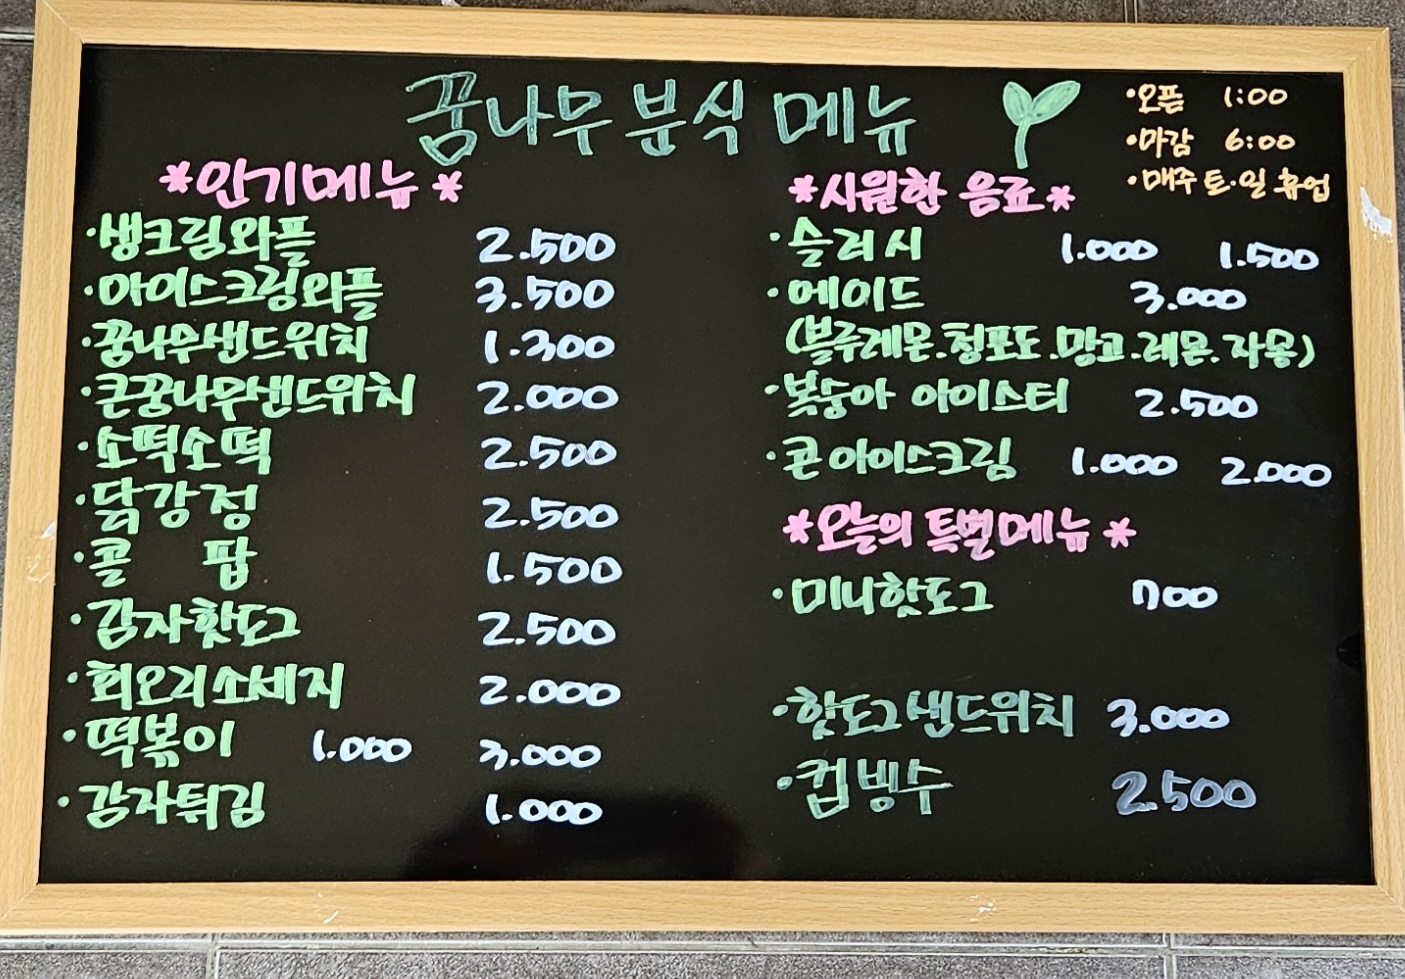 꿈나무 분식 메뉴
·오픈 1:00
·마감 6:00
·매주 토·일 휴업
*인기메뉴*
·생크림와플 2.500
·아이스크림와플 3.500
·꿈나무샌드위치 1.300
·큰꿈나무샌드위치 2.000
·소떡소떡 2.500
·닭강정 2.500
·콜팝 1.500
·감자핫도그 2.500
·회오리소세지 2.000
·떡볶이 1.000 3.000
·감자튀김 1.000
*시원한 음료*
·슬러시 1.000 1.500
·에이드 3.000
(블루레몬.청포도.망고.레몬.자몽)
·복숭아 아이스티 2.500
·콘아이스크림 1.000 2.000
*오늘의 특별메뉴*
·미니핫도그 700
·핫도그샌드위치 3.000
·컵빙수 2500